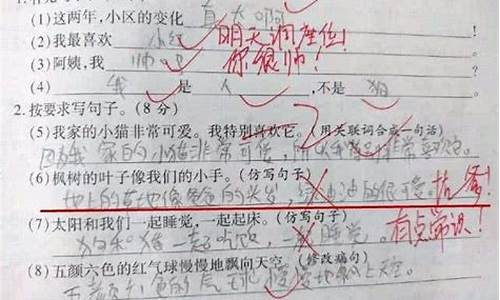 (1)这两年,小区的变化 真大啊
(2)我最喜欢 小红 明天调座位!
(3)阿姨,我 帅吧 你很帅!
(4) 我 是 人 ,不是 狗
2.按要求写句子。(8分)
(5)我家的小猫非常可爱。我特别喜欢它。(用关联词合成一句话)
因为我家的小猫非常可爱,所以我 非常喜欢它。
(6)枫树的叶子像我们的小手。(仿写句子)
地上的草地像爸爸的头发,绿油油的很可爱。抗象!
(7)太阳和我们一起睡觉,一起起床。(仿写句子)
狗和猪一起吃饭,一起睡觉。 有点常识!
(8)五颜六色的红气球慢慢地飘向天空。(修改病句)
五颜六色的气球慢慢地飘上天空。